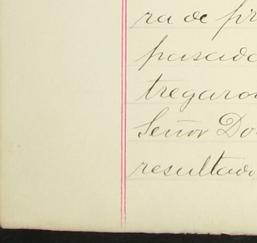 ra de pr
pasado
tregaron
Señor Do
resultado